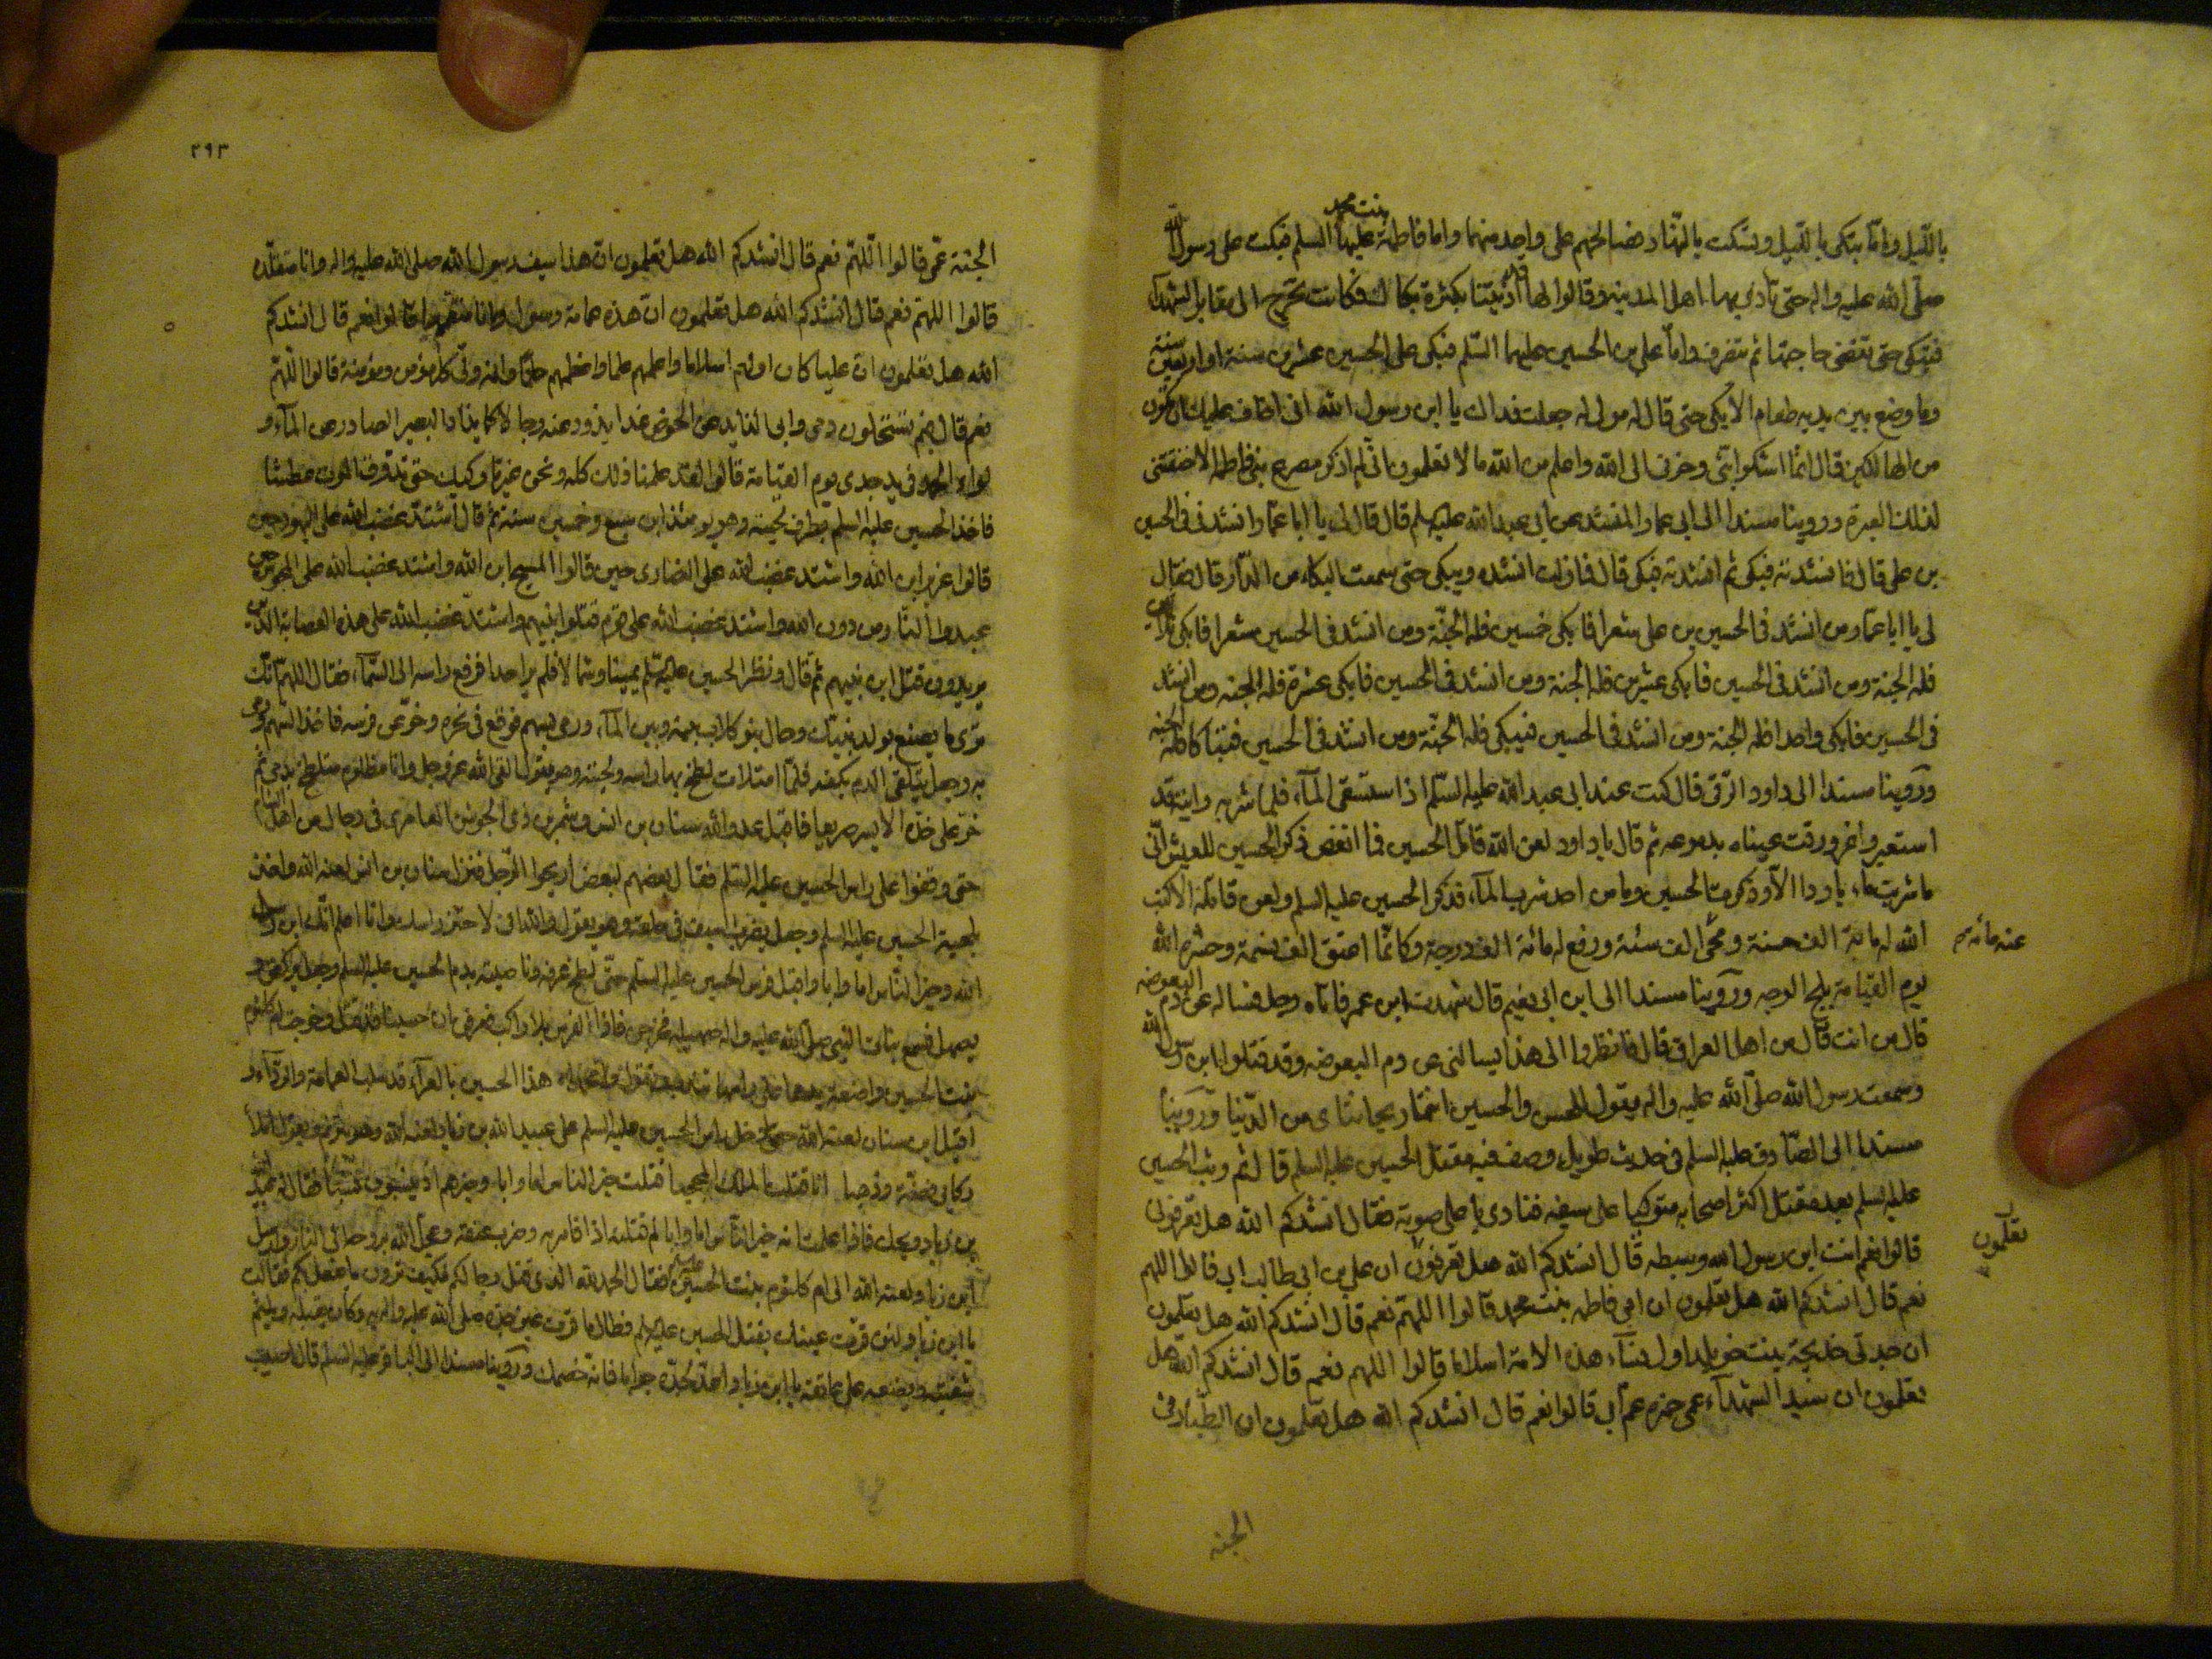 بنت محمد
بالليل واما تبكى بالليل وتسكت بالنهار فصالحهم على واحد منهما واما فاطمة عليها السلم فبكت على رسول الله
صلى الله عليه واله حتى تأذى بها اهل المدينة وقالوا لها قد اذيتنا بكثرة بكائك فكانت تخرج الى مقابر الشهداء
فتبكى حتى تقضى حاجتها ثم تنصرف واما على بن الحسين عليهما السلم فبكى على الحسين عشرين سنة او اربعين سنة
وما وضع بين يديه طعام الا بكى حتى قال له مولى له جعلت فداك يا ابن رسول الله انى اخاف عليك ان تكون
من الهالكين قال انما اشكوا بثى وحزنى الى الله واعلم من الله ما لا تعلمون انى لم اذكر مصرع بنى فاطمه الا خنقتنى
لذلك العبرة وروينا مسندا الى ابى عمار المنشد عن ابى عبد الله عليه السلم قال قال لى يا ابا عمار انشدنى فى الحسين
بن على قال فانشدته فبكى ثم انشدته فبكى قال فما زلت انشده ويبكى حتى سمعت البكاء من الدار قال فقال
لى يا ابا عمار من انشد فى الحسين بن على شعرا فابكى خمسين فله الجنة ومن انشد فى الحسين شعرا فابكى ثلاثين
فله الجنة ومن انشد فى الحسين فابكى عشرين فله الجنة ومن انشد فى الحسين فابكى عشرة فله الجنة ومن انشد
فى الحسين فابكى واحدا فله الجنة ومن انشد فى الحسين فبكى فله الجنة ومن انشد فى الحسين فتباكا فله الجنة
وروينا مسندا الى داود الرقى قال كنت عند ابى عبد الله عليه السلم اذا ستسقى الماء فلما شربه رايته قد
استعبر واغرورقت عيناه بدموعه ثم قال يا داود لعن الله قاتل الحسين فما انغص ذكر الحسين للعيش انى
ما شربت ماء باردا الا وذكرت الحسين وما من احد شرب الماء فذكر الحسين عليه السلم ولعن قاتله الا كتب
الله له مائة الف حسنة ومحى الف سيئة ورفع له مائة الف درجة وكانما اعتق الف نسمة وحشره الله
عنه مائة
يوم القيامة بلج الوجه وروينا مسندا الى ابن ابى نعيم قال شهدت ابن عمر فاتاه رجل فساله عن دم البعوضه
قال من انت قال من اهل العراق قال فانظروا الى هذا يسالنى عن دم البعوضه وقد قتلوا ابن رسول الله
وسمعت رسول الله صلى الله عليه واله يقول للحسن والحسين انهما ريحانتاى من الدنيا وروينا
مسندا الى الصادق عليه السلم فى حديث طويل وصف فيه مقتل الحسين عليه السلم قال ثم وثب الحسين
عليه السلم بعد مقتل اكثر اصحابه متوكيا على سيفه فنادى باعلى صوته فقال انشدكم الله هل تعرفونى
قالوا نعم انت ابن رسول الله وسبطه قال انشدكم الله هل تعرفون ان على بن ابى طالب ابى قالوا اللهم
تعلمون
نعم قال انشدكم الله هل تعلمون ان امى فاطمه بنت محمد قالوا اللهم نعم قال انشدكم الله هل تعلمون
ان جدتى خديجة بنت خويلد اول نساء هذه الامة اسلاما قالوا اللهم نعم قال انشدكم الله هل
تعلمون ان سيد الشهداء عمى حمزه عم ابى قالوا نعم قال انشدكم الله هل تعلمون ان الطيار فى
الجنه
٢٩٣
الجنة عمى قالوا اللهم نعم قال انشدكم الله هل تعلمون ان هذا سيف رسول الله صلى الله عليه واله وانا متقلده
قالوا اللهم نعم قال انشدكم الله هل تعلمون ان هذه عمامة رسول الله انا قالوا نعم قال انشدكم
الله هل تعلمون ان عليا كان اولهم اسلاما واعلمهم علما واعظمهم حلما وانه ولى كل مؤمن ومؤمنة قالوا اللهم
نعم قال فبم تستحلون دمى وابى الذايد عن الحوض غدا يذود عنه رجالا كما يذاد البعير الصادر عن الماء و
لواء الحمد فى يد جدى يوم القيامة قالوا لقد علمنا ذلك كله ونحن غير تاركيك حتى تذوق الموت عطشا
فاخذ الحسين عليه السلم بطرف لحيته وهو يومئذ ابن سبع وخمسين سنة ثم قال اشتد غضب الله على اليهود حين
قالوا عزير ابن الله واشتد غضب الله على النصارى حين قالوا المسيح ابن الله واشتد غضب الله على المجوس حين
عبدوا النار من دون الله واشتد غضب الله على قوم قتلوا نبيهم واشتد غضب الله على هذه العصابة الذين
يريدون قتل ابن نبيهم ثم قال ونظر الحسين عليه السلم يمينا وشمالا فلم ير احدا فرفع راسه الى السماء فقال اللهم انك
ترى ما يصنع بولد نبيك وحال بنو كلاب بينه وبين الماء ورمى بسهم فوقع فى نحره وخر عن فرسه فاخذ السهم فرمى
به وجعل يتلقى الدم بكفه فلما امتلات لطخ بها راسه ولحيته وهو يقول القى الله عز وجل وانا مظلوم متلطخ بدمى ثم
خر على خده الايسر صريعا فاقبل عدو الله سنان بن انس وشمر بن ذى الجوشن العامرى فى رجال من اهل الشام
حتى وقفوا على راس الحسين عليه السلم فقال بعضهم لبعض اريحوا الرجل فنزل سنان بن انس لعنه الله واخذ
بلحية الحسين عليه السلم وجعل يضرب بالسيف فى حلقه وهو يقول والله انى لاحتز راسك وانا اعلم انك ابن رسول
الله وخير الناس اما وابا واقبل فرس الحسين عليه السلم حتى لطخ عرفه وناصيته بدم الحسين عليه السلم وجعل يركض و
يصهل فسمع بنات النبى صلى الله عليه واله صهيله فخرجن فاذا الفرس بلا راكب فعرفن ان حسينا قد قتل وخرجت ام كلثوم
بنت الحسين واضعة يدها على راسها تقول وامحمداه هذا الحسين بالعراء قد سلب العمامة والرداء و
اقبل ابن سنان لعنه الله حتى ادخل راس الحسين عليه السلم على عبيد الله بن زياد لعنه الله وهو يقول املأ
ركابى فضة وذهبا انا قتلت الملك المحجبا قتلت خير الناس اما وابا وخيرهم اذ ينسبون نسبا فقال له عبيد الله
بن زياد ويحك فاذا علمت انه خير الناس اما وابا لم قتلته اذا فامر به وضرب عنقه وعجل الله بروحه الى النار وارسل
ابن زياد لعنه الله الى ام كلثوم بنت الحسين فقال الحمد لله الذى قتل رجالكم فكيف ترون ما فعل بكم فقالت
يا ابن زياد لئن قرت عينك بقتل الحسين عليه السلم فطال ما قرت عين جده صلى الله عليه واله به وكان يقبله ويلثم
شفتيه ويضعه على عاتقه يا ابن زياد اعد لجده جوابا فانه خصمك وروينا مسندا الى الباقر عليه السلم قال اصيب